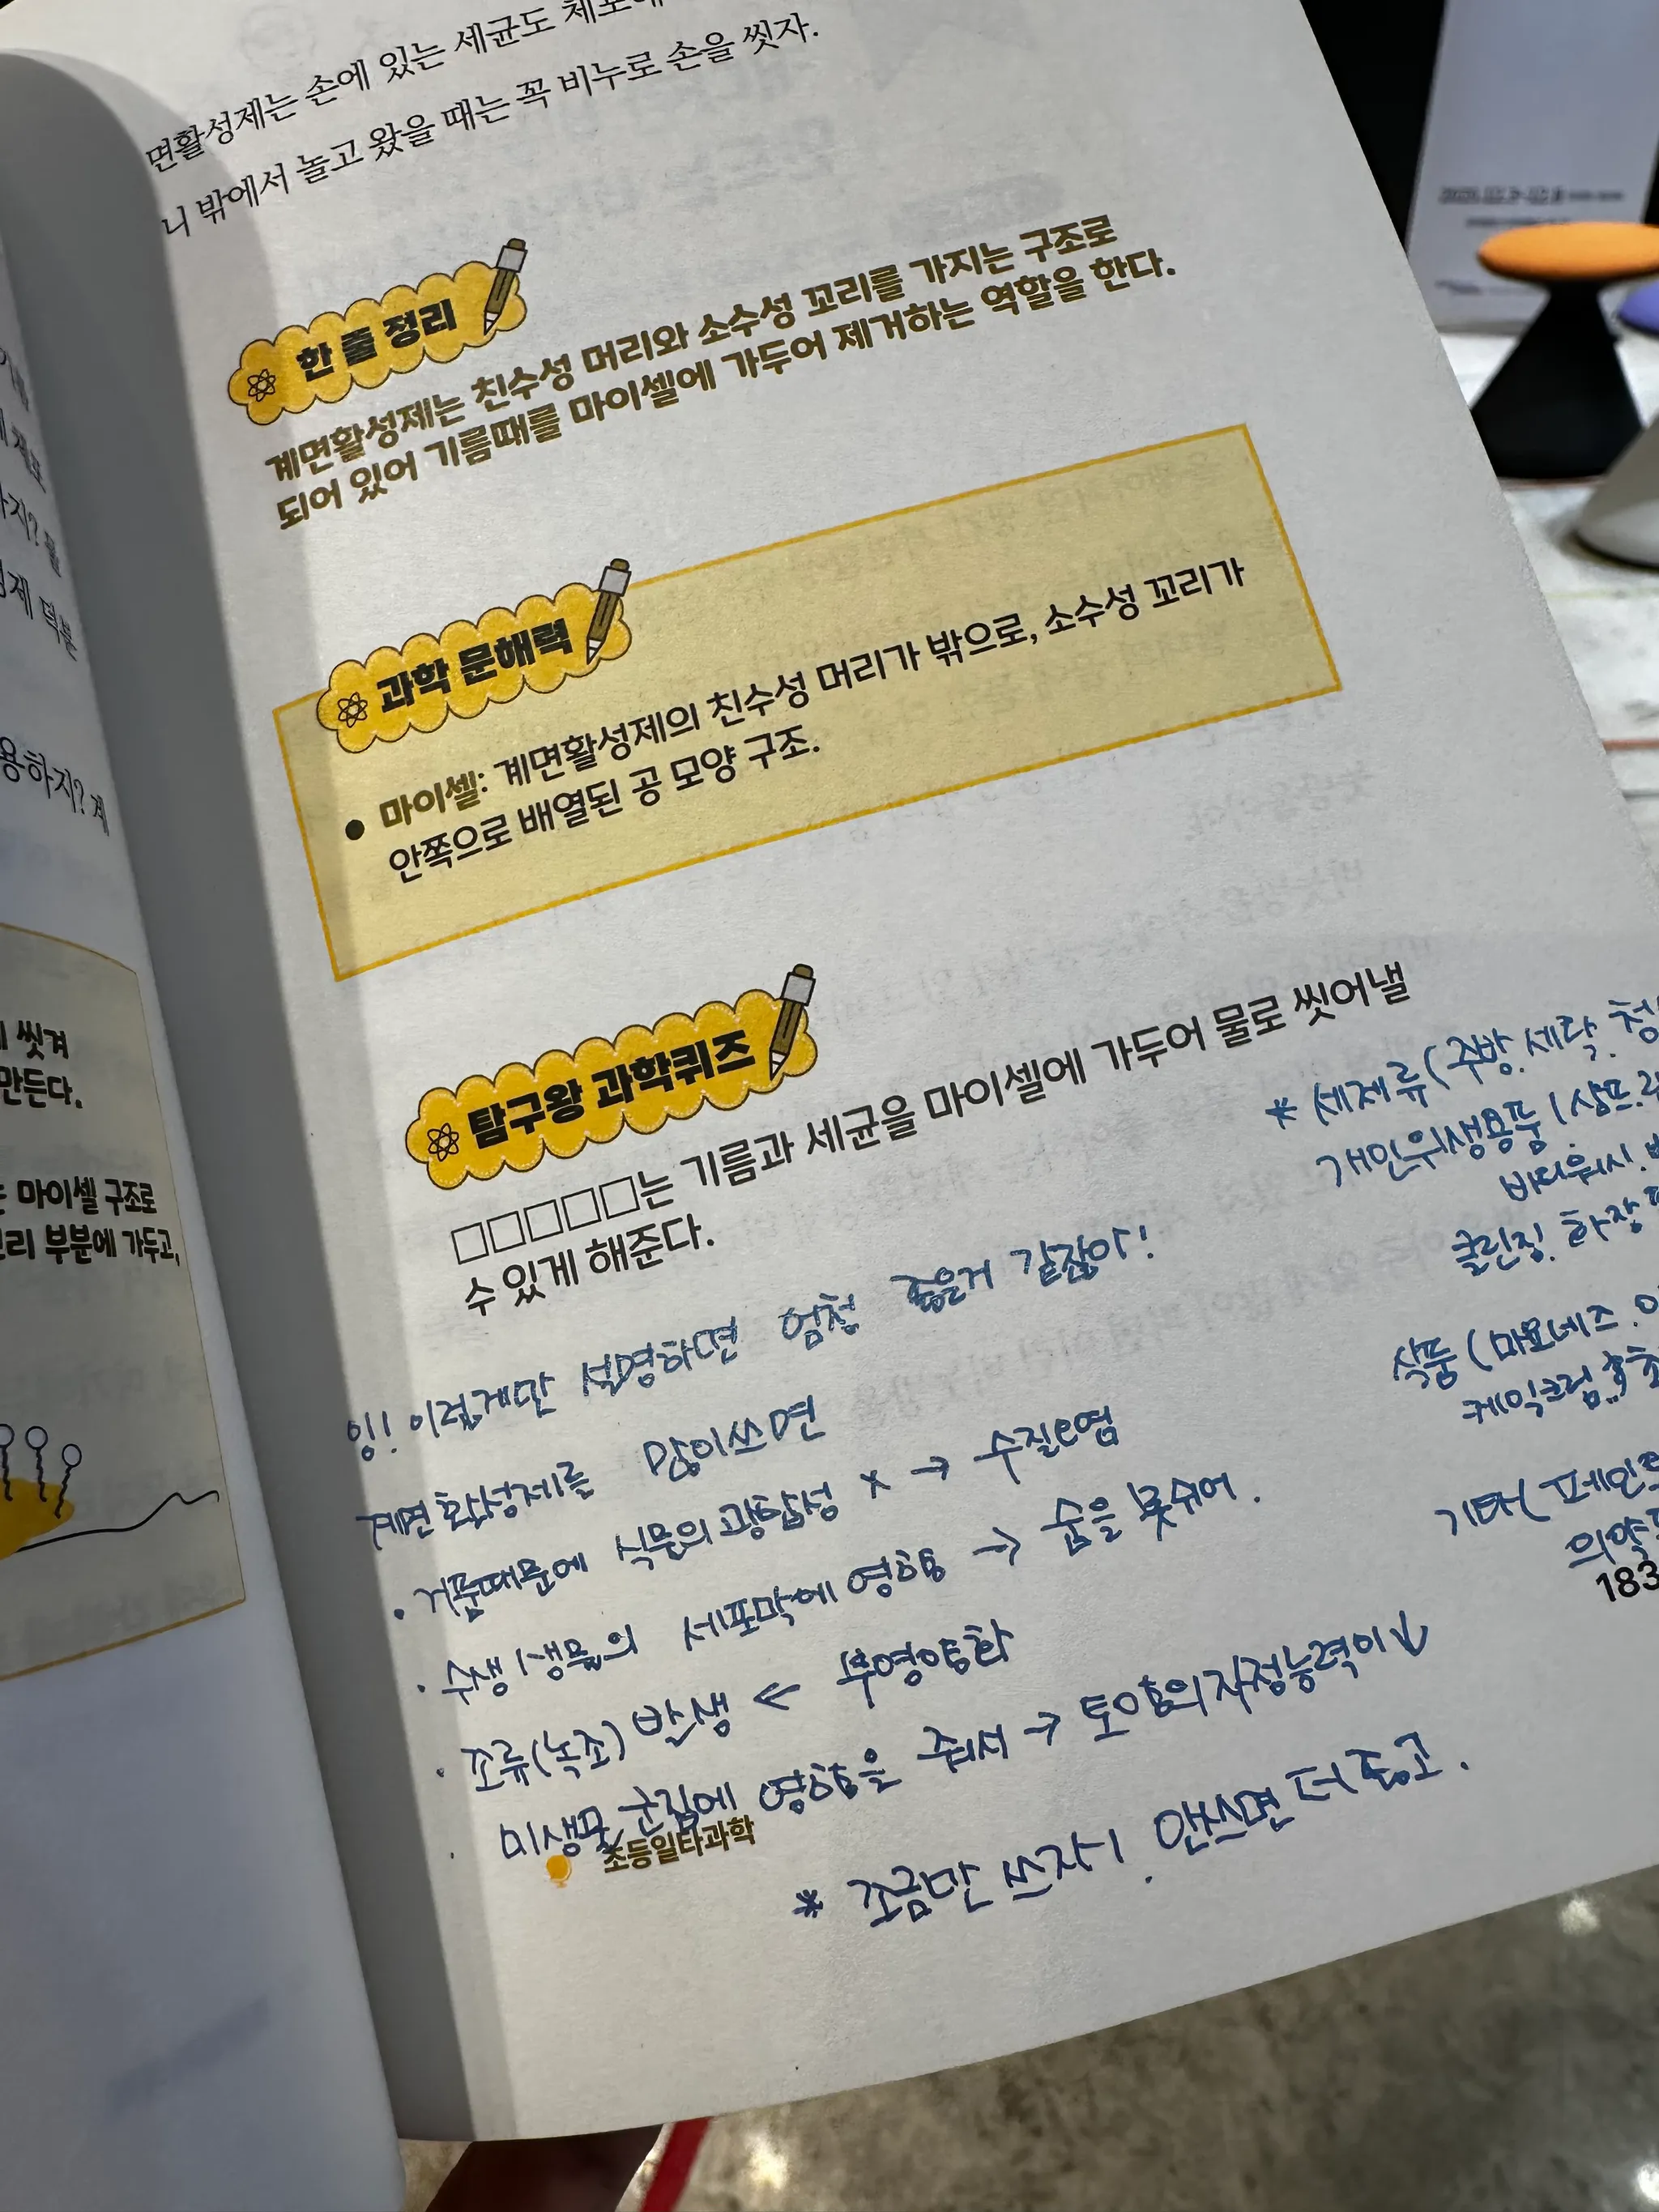 면활성제는 손에 있는 세균도
니 밖에서 놀고 왔을 때는 꼭 비누로 손을 씻자.
한 줄 정리
계면활성제는 친수성 머리와 소수성 꼬리를 가지는 구조로
되어 있어 기름때를 마이셀에 가두어 제거하는 역할을 한다.
과학 문해력
● 마이셀: 계면활성제의 친수성 머리가 밖으로, 소수성 꼬리가
안쪽으로 배열된 공 모양 구조.
탐구왕 과학퀴즈
□□□□□는 기름과 세균을 마이셀에 가두어 물로 씻어낼
수 있게 해준다.
잉! 이렇게만 설명하면 엄청 좋을거 같잖아!
계면활성제를 많이쓰면
· 거품때문에 식물의 광합성 x → 수질오염
· 수생생물의 세포막에 영향 → 숨을 못쉬어.
· 조류(녹조) 발생 ← 부영양화
· 미생물 군집에 영향을 줘서 → 토양의 자정능력이↓
* 조금만 쓰자! 안쓰면 더 좋고.
* 세제류 (주방. 세탁.
개인위생용품 (샴푸.
바디워시.
클린징. 화장
식품 (마요네즈.
케익크림.
기타 (페인트
183
초등일타과학
씻겨
만든다.
마이셀 구조로
부분에 가두고,
용하지? 계